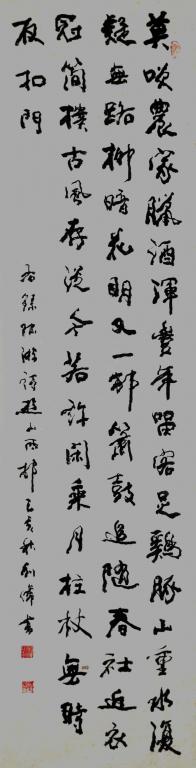 莫咲農家臘酒渾豐年留客足鷄豚山重水復
疑無路柳暗花明又一邨簫鼓追隨春社近衣
冠簡樸古風存從今若許閑乘月拄杖無時
夜扣門
右錄陸游詩遊山西邨 亥秋 偉書